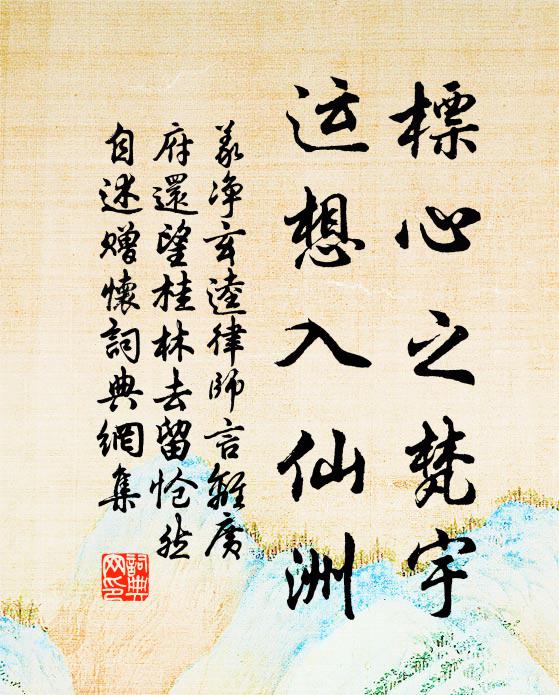 標心之梵宇
运想入仙洲
義净玄逵律師言離廣
府還望桂林去留怆然
自述贈懷詞典網集
詞典
网印